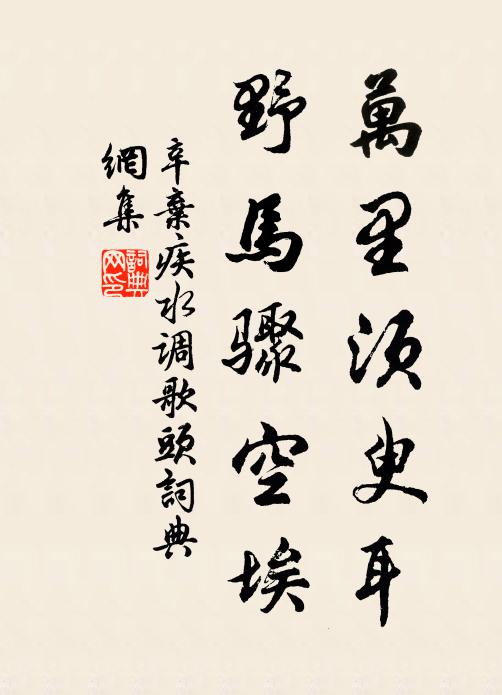 萬里須臾耳
野馬驟空埃
辛棄疾水调歌頭詞典
網集
詞典网印